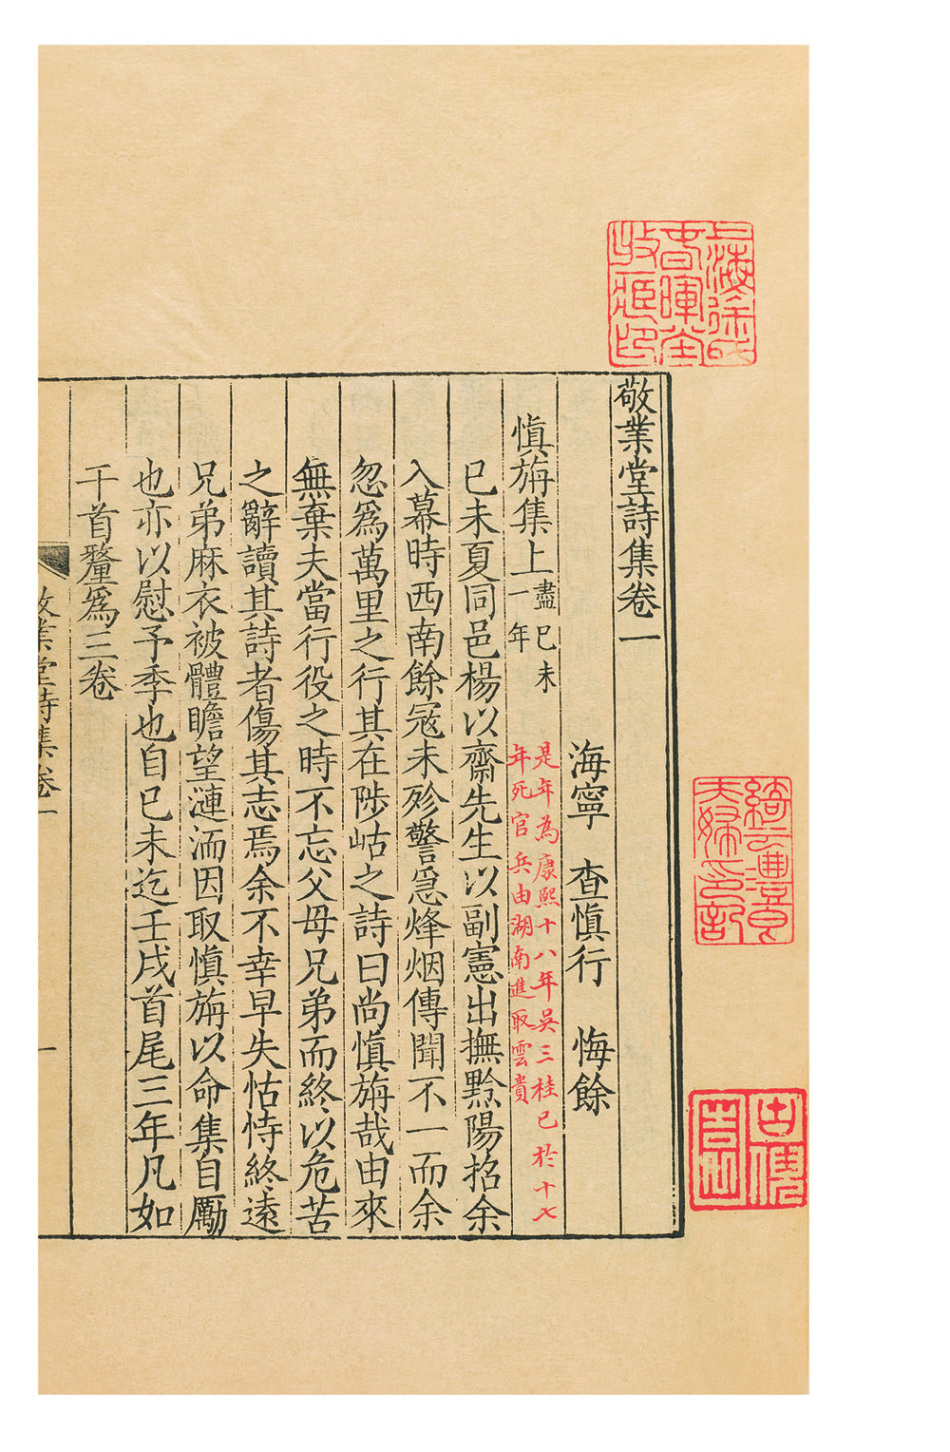 敬業堂詩集卷一
海寧　查慎行　悔餘
慎旃集上盡己未一年
是年為康熙十八年吳三桂已於十七
年死官兵由湖南進取雲貴
己未夏同邑楊以齋先生以副憲出撫黔陽招余
入幕時西南餘冦未殄警急烽烟傳聞不一而余
忽爲萬里之行其在陟岵之詩曰尚慎旃哉由來
無棄夫當行役之時不忘父母兄弟而終以危苦
之辭讀其詩者傷其志焉余不幸早失怙恃終遠
兄弟麻衣被體瞻望漣洏因取慎旃以命集自勵
也亦以慰予季也自己未迄壬戌首尾三年凡如
干首釐爲三卷
敬業堂詩集卷一
一
上海徐氏
春暉堂
收藏印
綺雲
夫婦印記